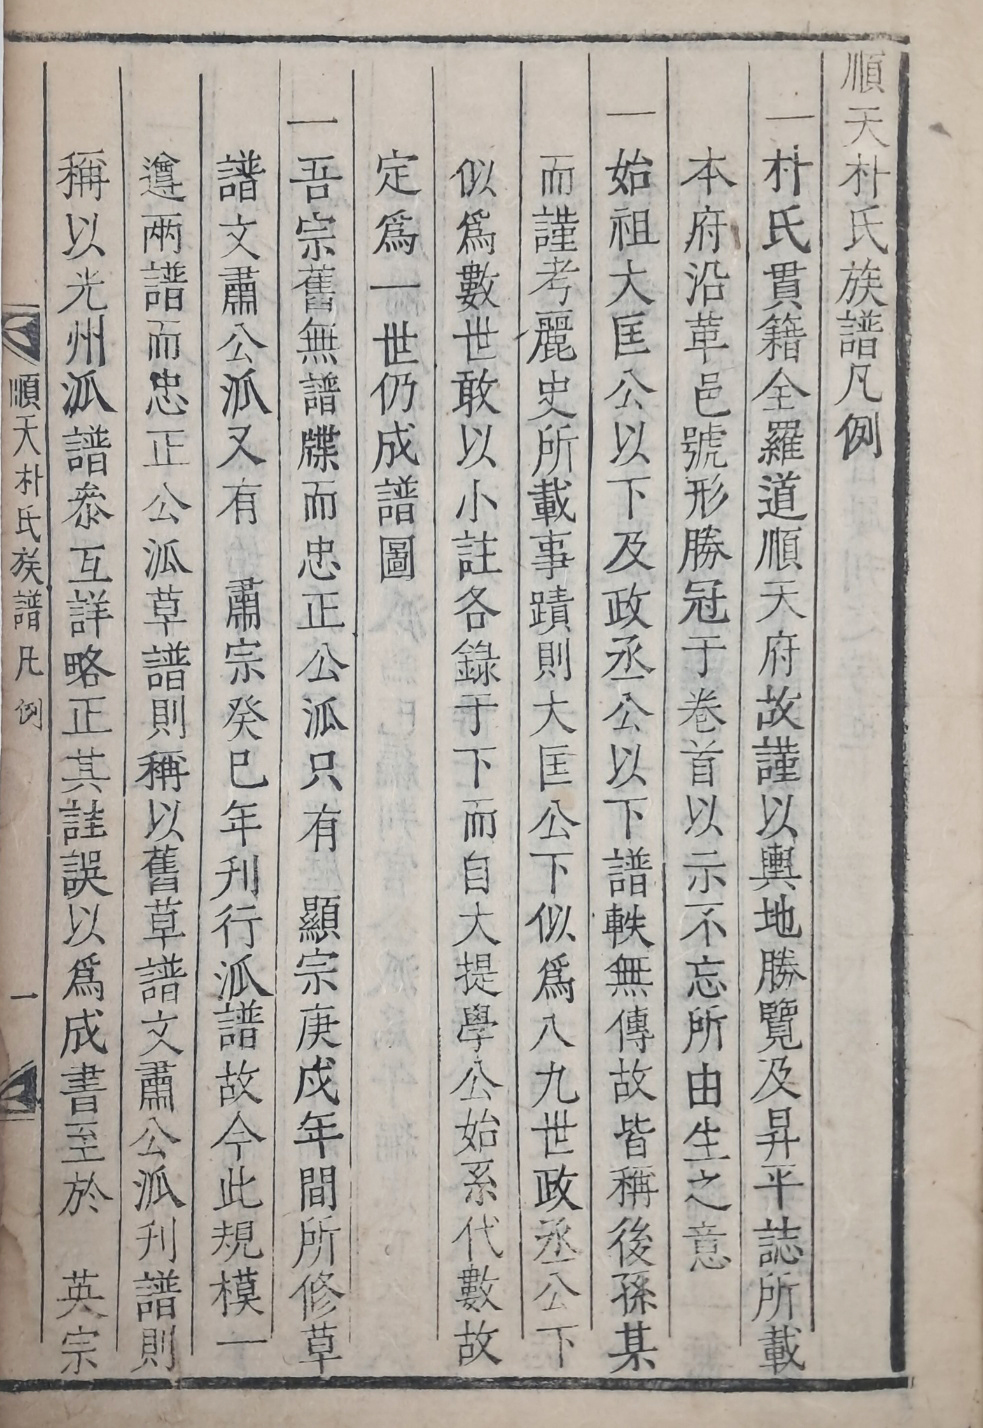 順天朴氏族譜凡例
一朴氏貫籍全羅道順天府故謹以輿地勝覽及昇平誌所載
本府沿革邑號形勝冠于卷首以示不忘所由生之意
一始祖大匡公以下及政丞公以下譜軼無傳故皆稱後孫某
而謹考麗史所載事蹟則大匡公下似爲八九世政丞公下
似爲數世敢以小註各錄于下而自大提學公始系代數故
定爲一世仍成譜圖
一吾宗舊無譜牒而忠正公派只有 顯宗庚戌年間所修草
譜文肅公派又有 肅宗癸巳年刊行派譜故今此規模一
遵兩譜而忠正公派草譜則稱以舊草譜文肅公派刊譜則
稱以光州派譜叅互詳略正其註誤以爲成書至於 英宗
順天朴氏族譜凡例 一